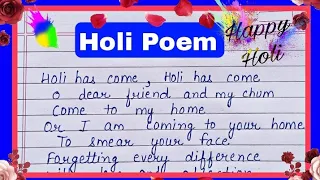 Holi Poem
Happy
Holi
Holi has come, Holi has come
O dear friend and my chum
Come to my home
Or I am coming to your home
To smear your face
Forgetting every difference